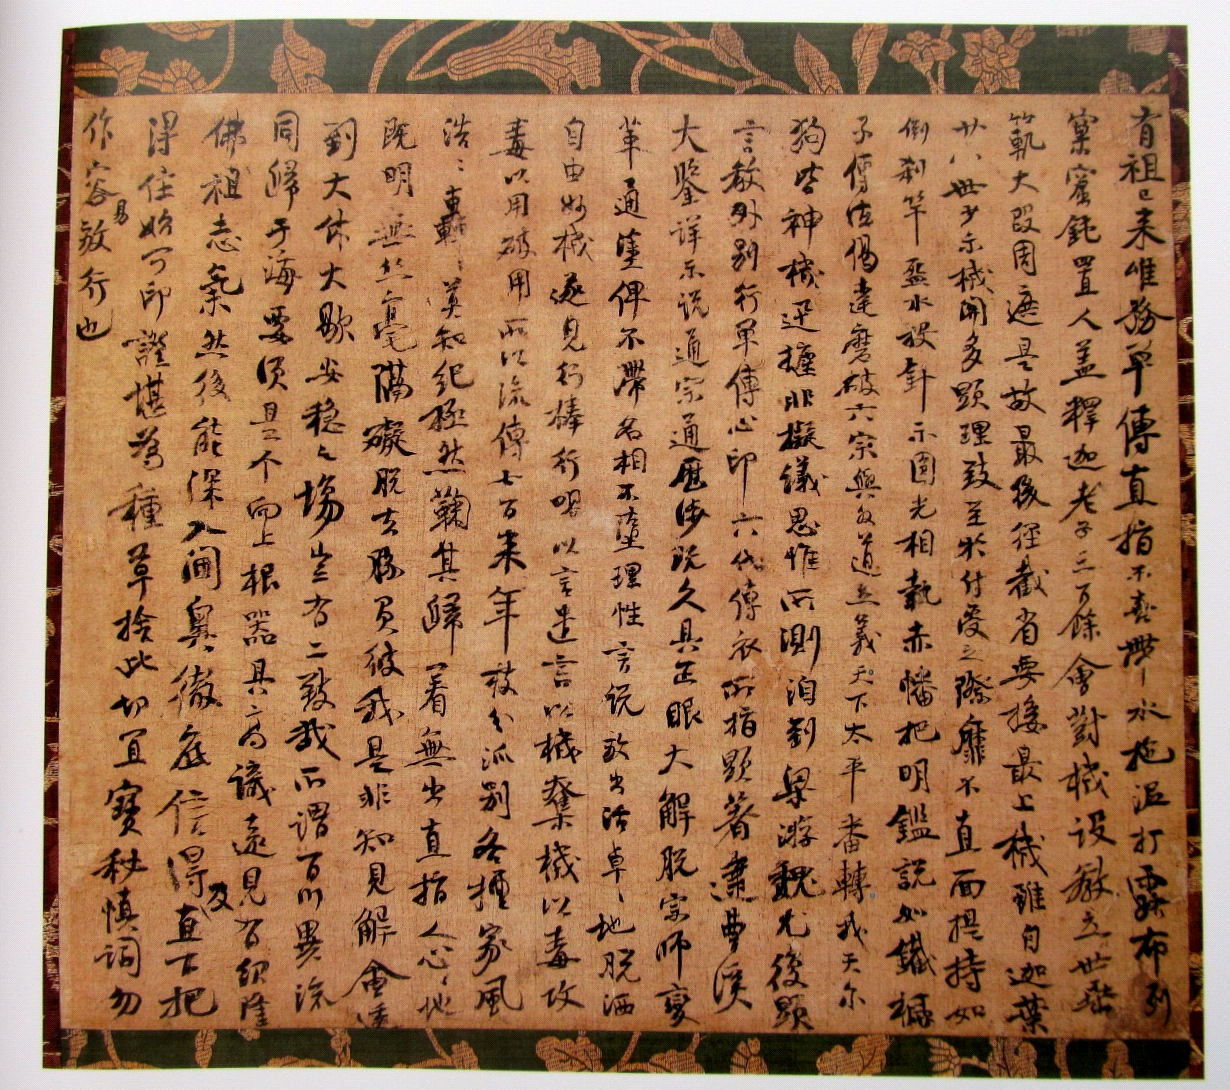 有祖已来唯務單傳直指不喜帶水拖泥打露布列
窠窟鈍置人盖釋迦老子三百餘會對機設教立世垂
範大段周遮是故最後徑截省要接最上機雖自迦葉
廿八世少示機関多顕理致至於付受之際靡不直面提持如
倒刹竿盋水投針示圓光相執赤幡把明鑑説如鐵橛
子傳法偈達磨破六宗與外道立義天下太平番轉我天尓
狗皆神機迅捷非擬議思惟所測洎到梁游魏尤復顕
言教外別行單傳心印六代傳衣所指顕著逮曹溪
大鑒詳示説通宗通歷涉既久具正眼大解脱宗師變
革通塗俾不滯名相不墮理性言説放出活卓〻地脱洒
自由妙機遂見行棒行喝以言遣言以機奪機以毒攻
毒以用破用所以流傳七百来年枝分派別各擅家風
浩〻轟〻莫知紀極然鞠其歸著無出直指人心〻地
既明無丝毫隔礙脱去勝負彼我是非知見解會透
到大休大歇安穏之場豈有二致哉所謂百川異流
同歸于海要須是个向上根器具高識遠見有紹隆
佛祖志氣然後能深入閫奥徹底信得及直下把
得住始可印證堪為種草捨此切宜寶秘慎詞勿
作容易放行也